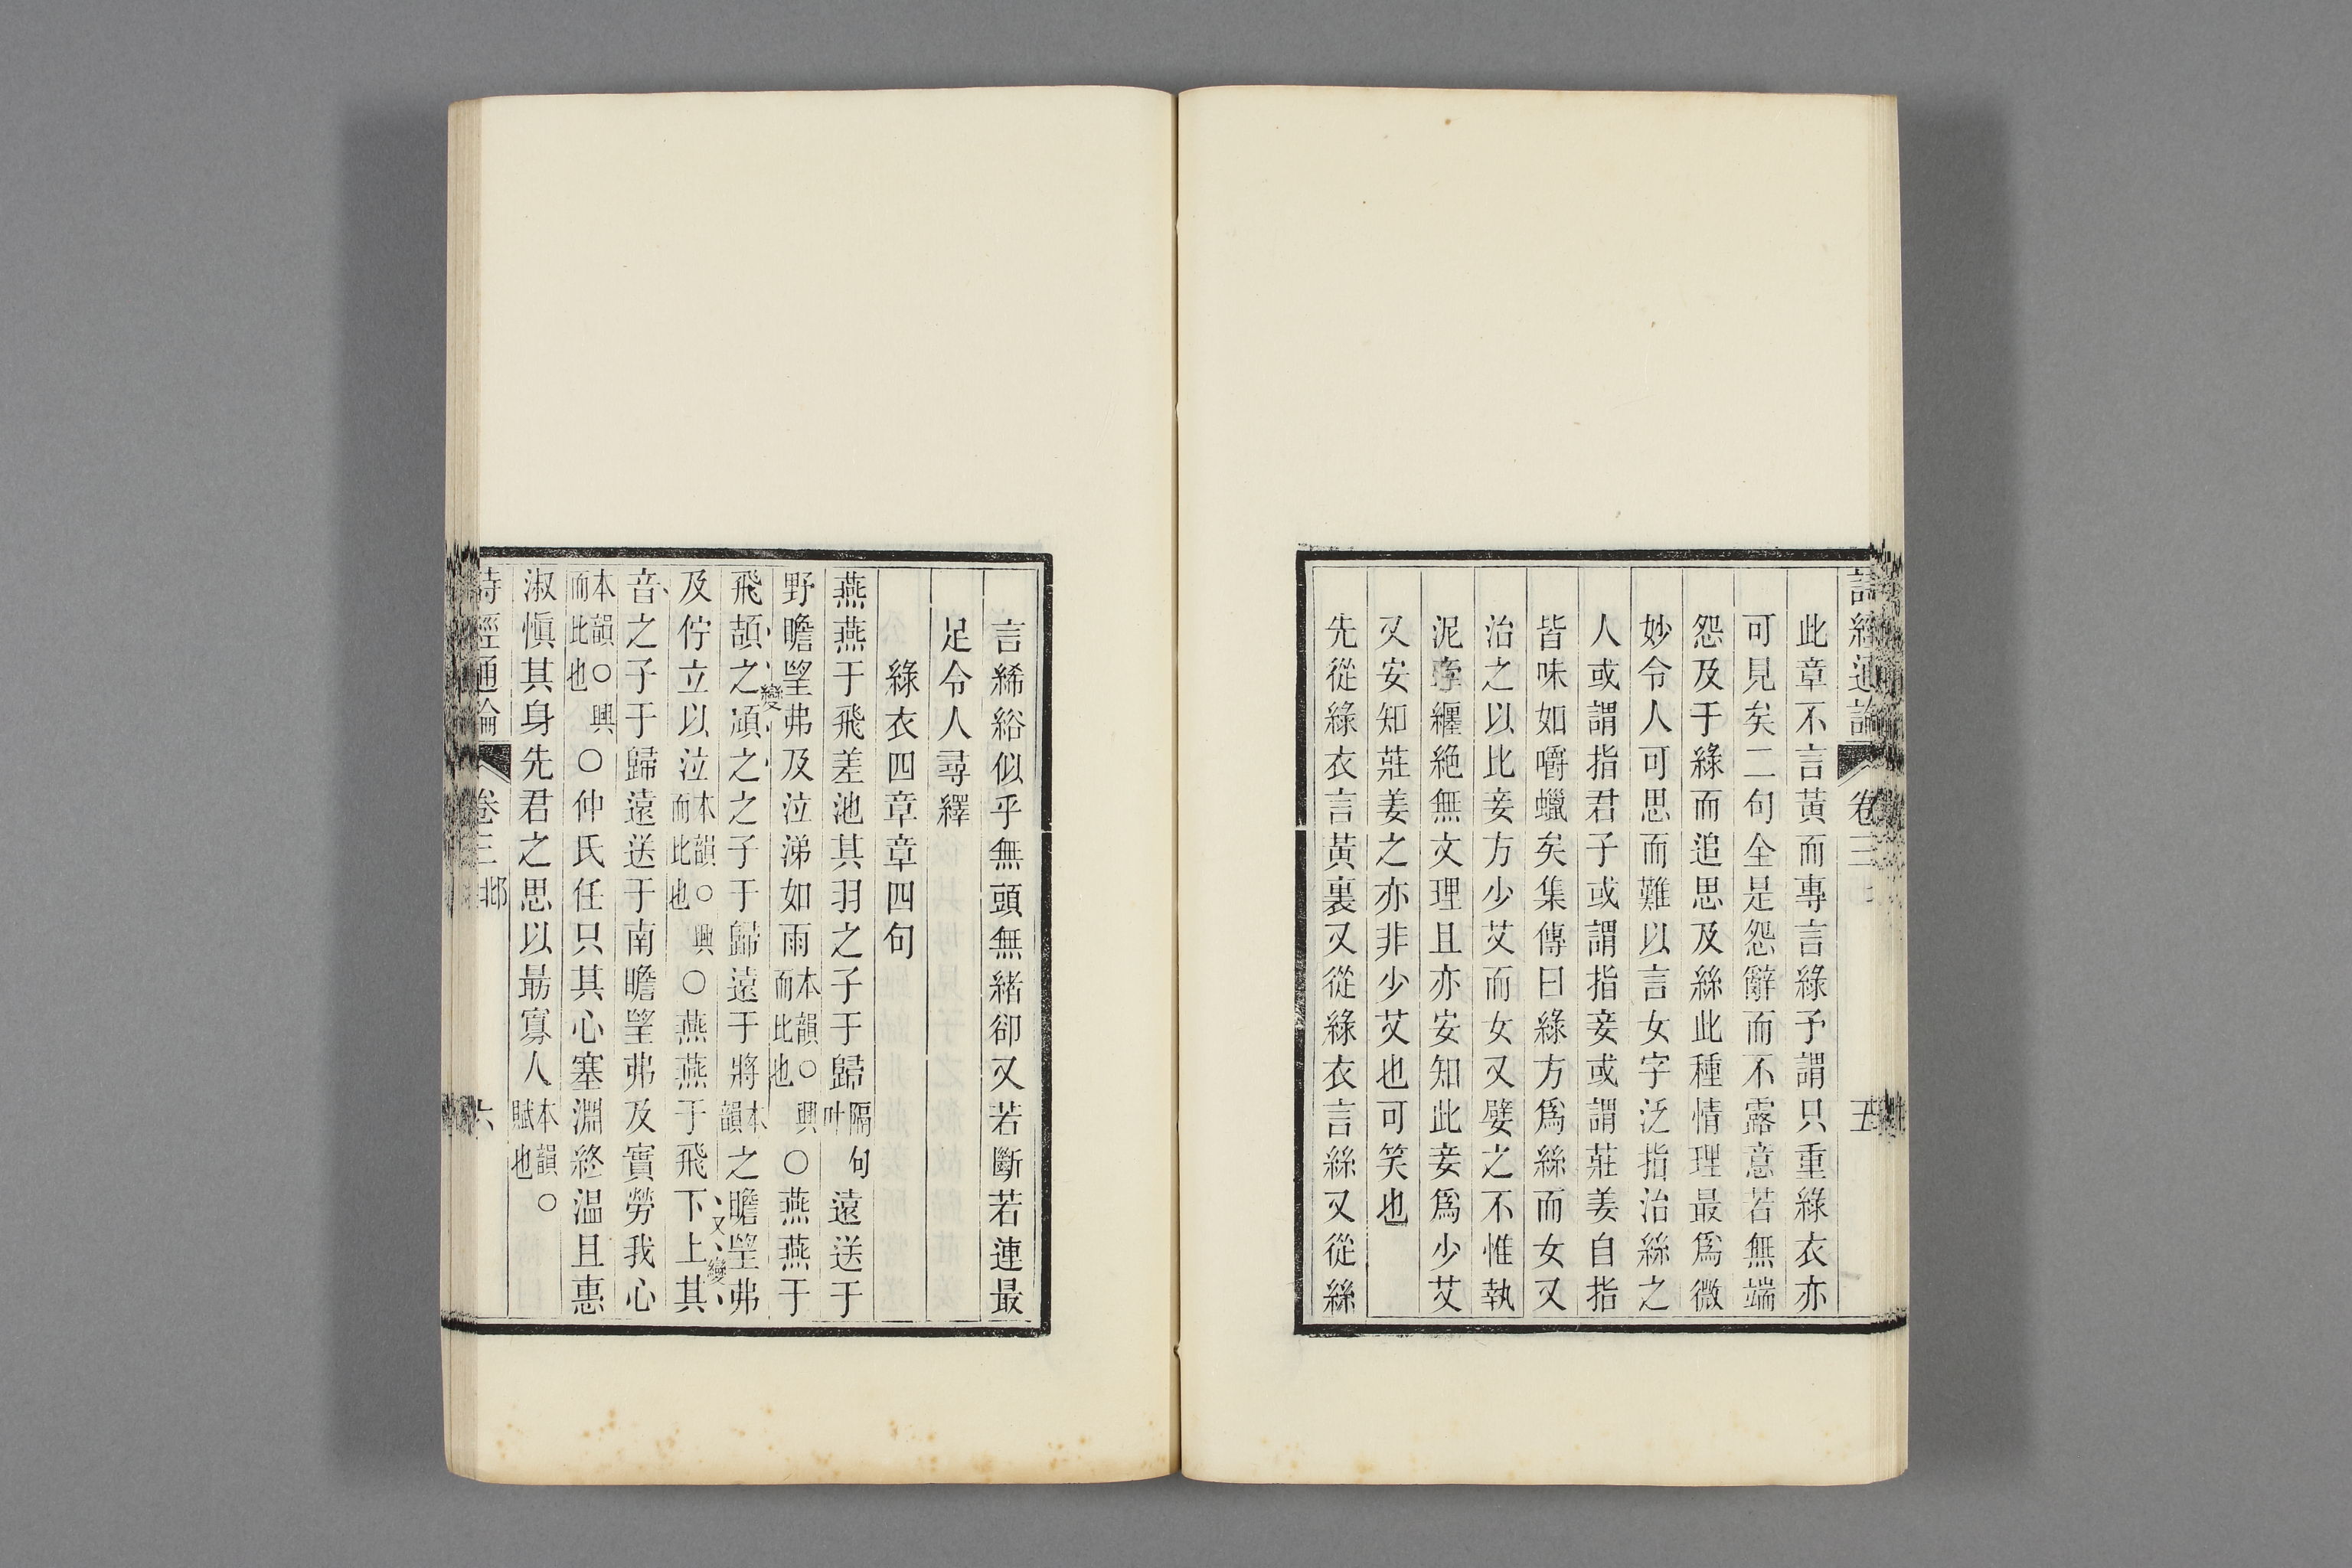 詩經通論 卷三 五
此章不言黃而專言綠予謂只重綠衣亦
可見矣二句全是怨辭而不露意若無端
怨及于綠而追思及絲此種情理最爲微
妙令人可思而難以言女字泛指治絲之
人或謂指君子或謂指妾或謂莊姜自指
皆味如嚼蠟矣集傳曰綠方爲絲而女又
治之以比妾方少艾而女又嬖之不惟執
泥牽纏絕無文理且亦安知此妾爲少艾
又安知莊姜之亦非少艾也可笑也
先從綠衣言黃裏又從綠衣言絲又從絲
言絺綌似乎無頭無緒卻又若斷若連最
足令人尋繹
綠衣四章章四句
燕燕于飛差池其羽之子于歸隔句叶遠送于
野瞻望弗及泣涕如雨本韻○興而比也○燕燕于
飛頡之變頏之之子于歸遠于將本韻之瞻望弗
及佇立以泣本韻○興而比也○燕燕于飛下上其又變
音之子于歸遠送于南瞻望弗及實勞我心
本韻○興而比也○仲氏任只其心塞淵終溫且惠
淑慎其身先君之思以勗寡人本韻○賦也
詩經通論 卷三 邶 六